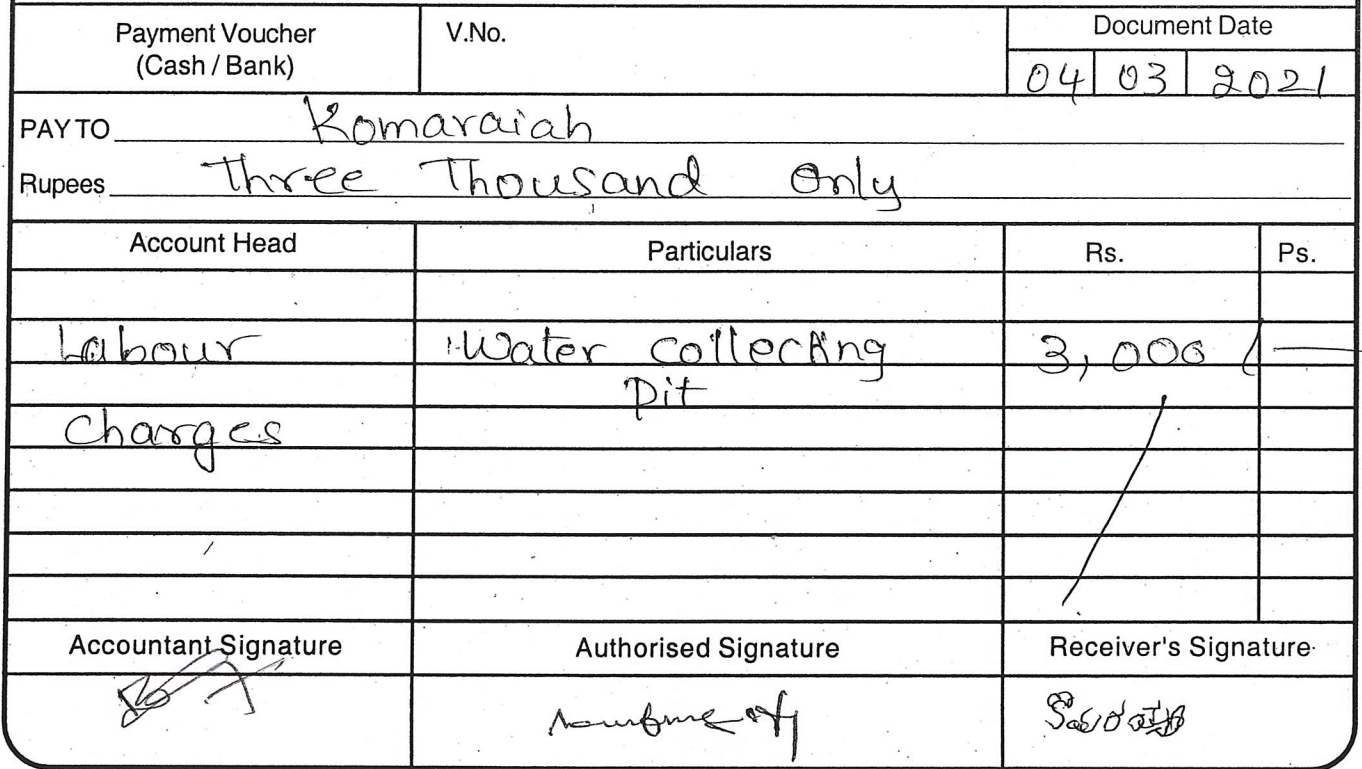 Payment Voucher
(Cash / Bank)
V.No.
Document Date
04 03 2021
PAY TO Komaraiah
Rupees Three Thousand Only
Account Head Particulars Rs. Ps.
Labour Water collecting 3,000/—
Pit
Charges
Accountant Signature Authorised Signature Receiver's Signature